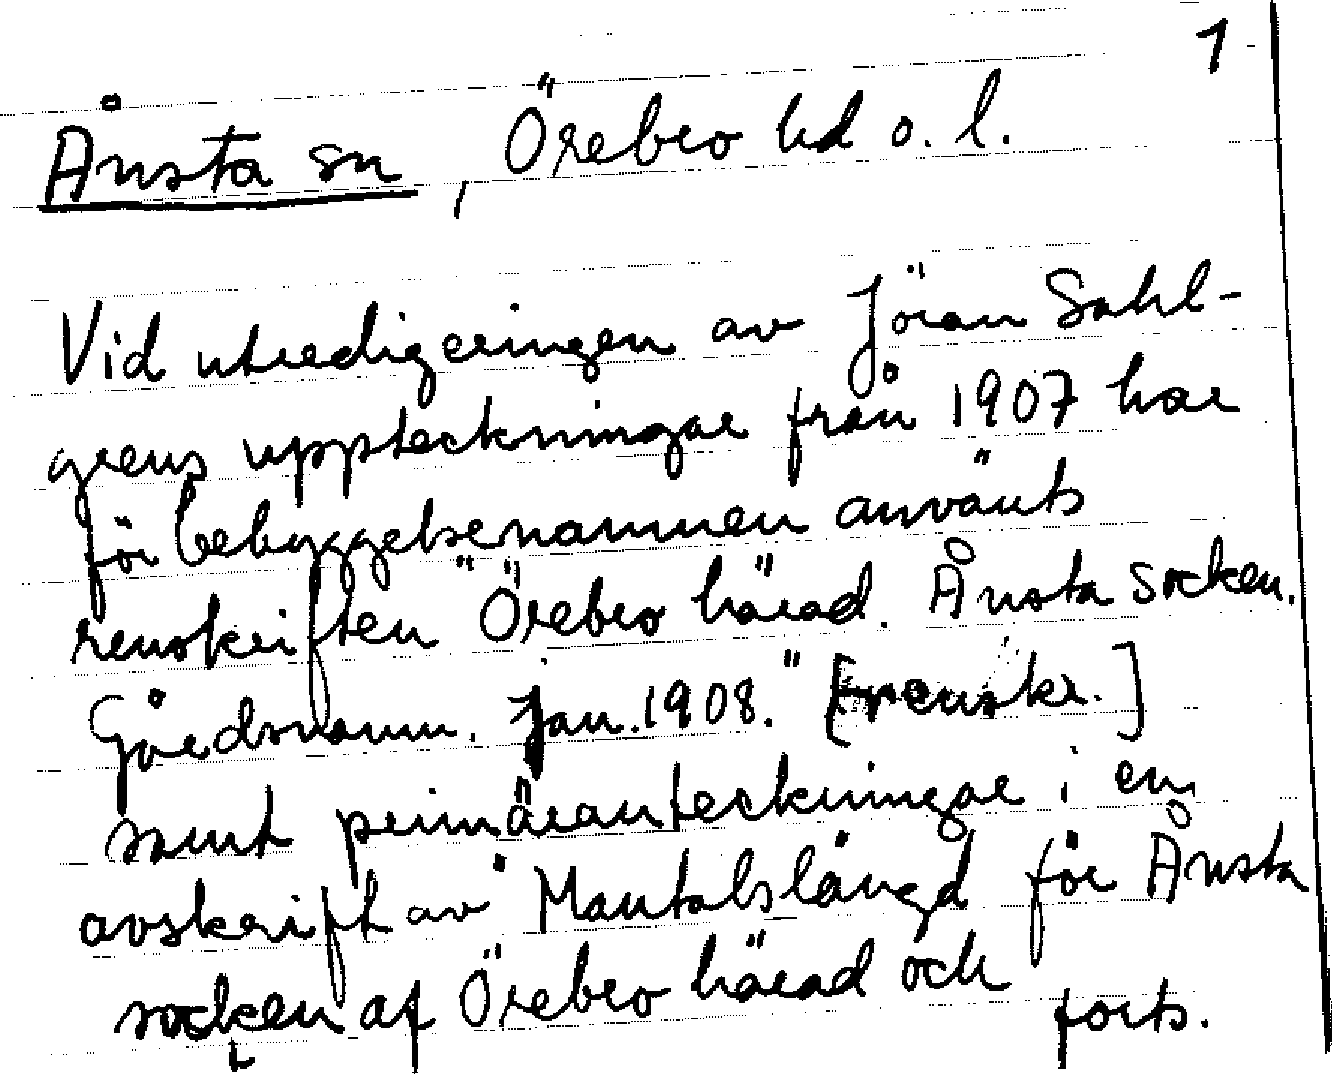 1
Ånsta sn, Örebro hd o. l.
Vid utredigeringen av Jöran Sahl-
grens uppteckningar från 1907 har
för bebyggelsenamnen använts
renskriften "Örebro härad. Ånsta socken.
Gårdsnamn. Jan. 1908." [renskr.]
samt primäranteckningar i en
avskrift av "Mantalslängd för Ånsta
socken af Örebro härad och
forts.